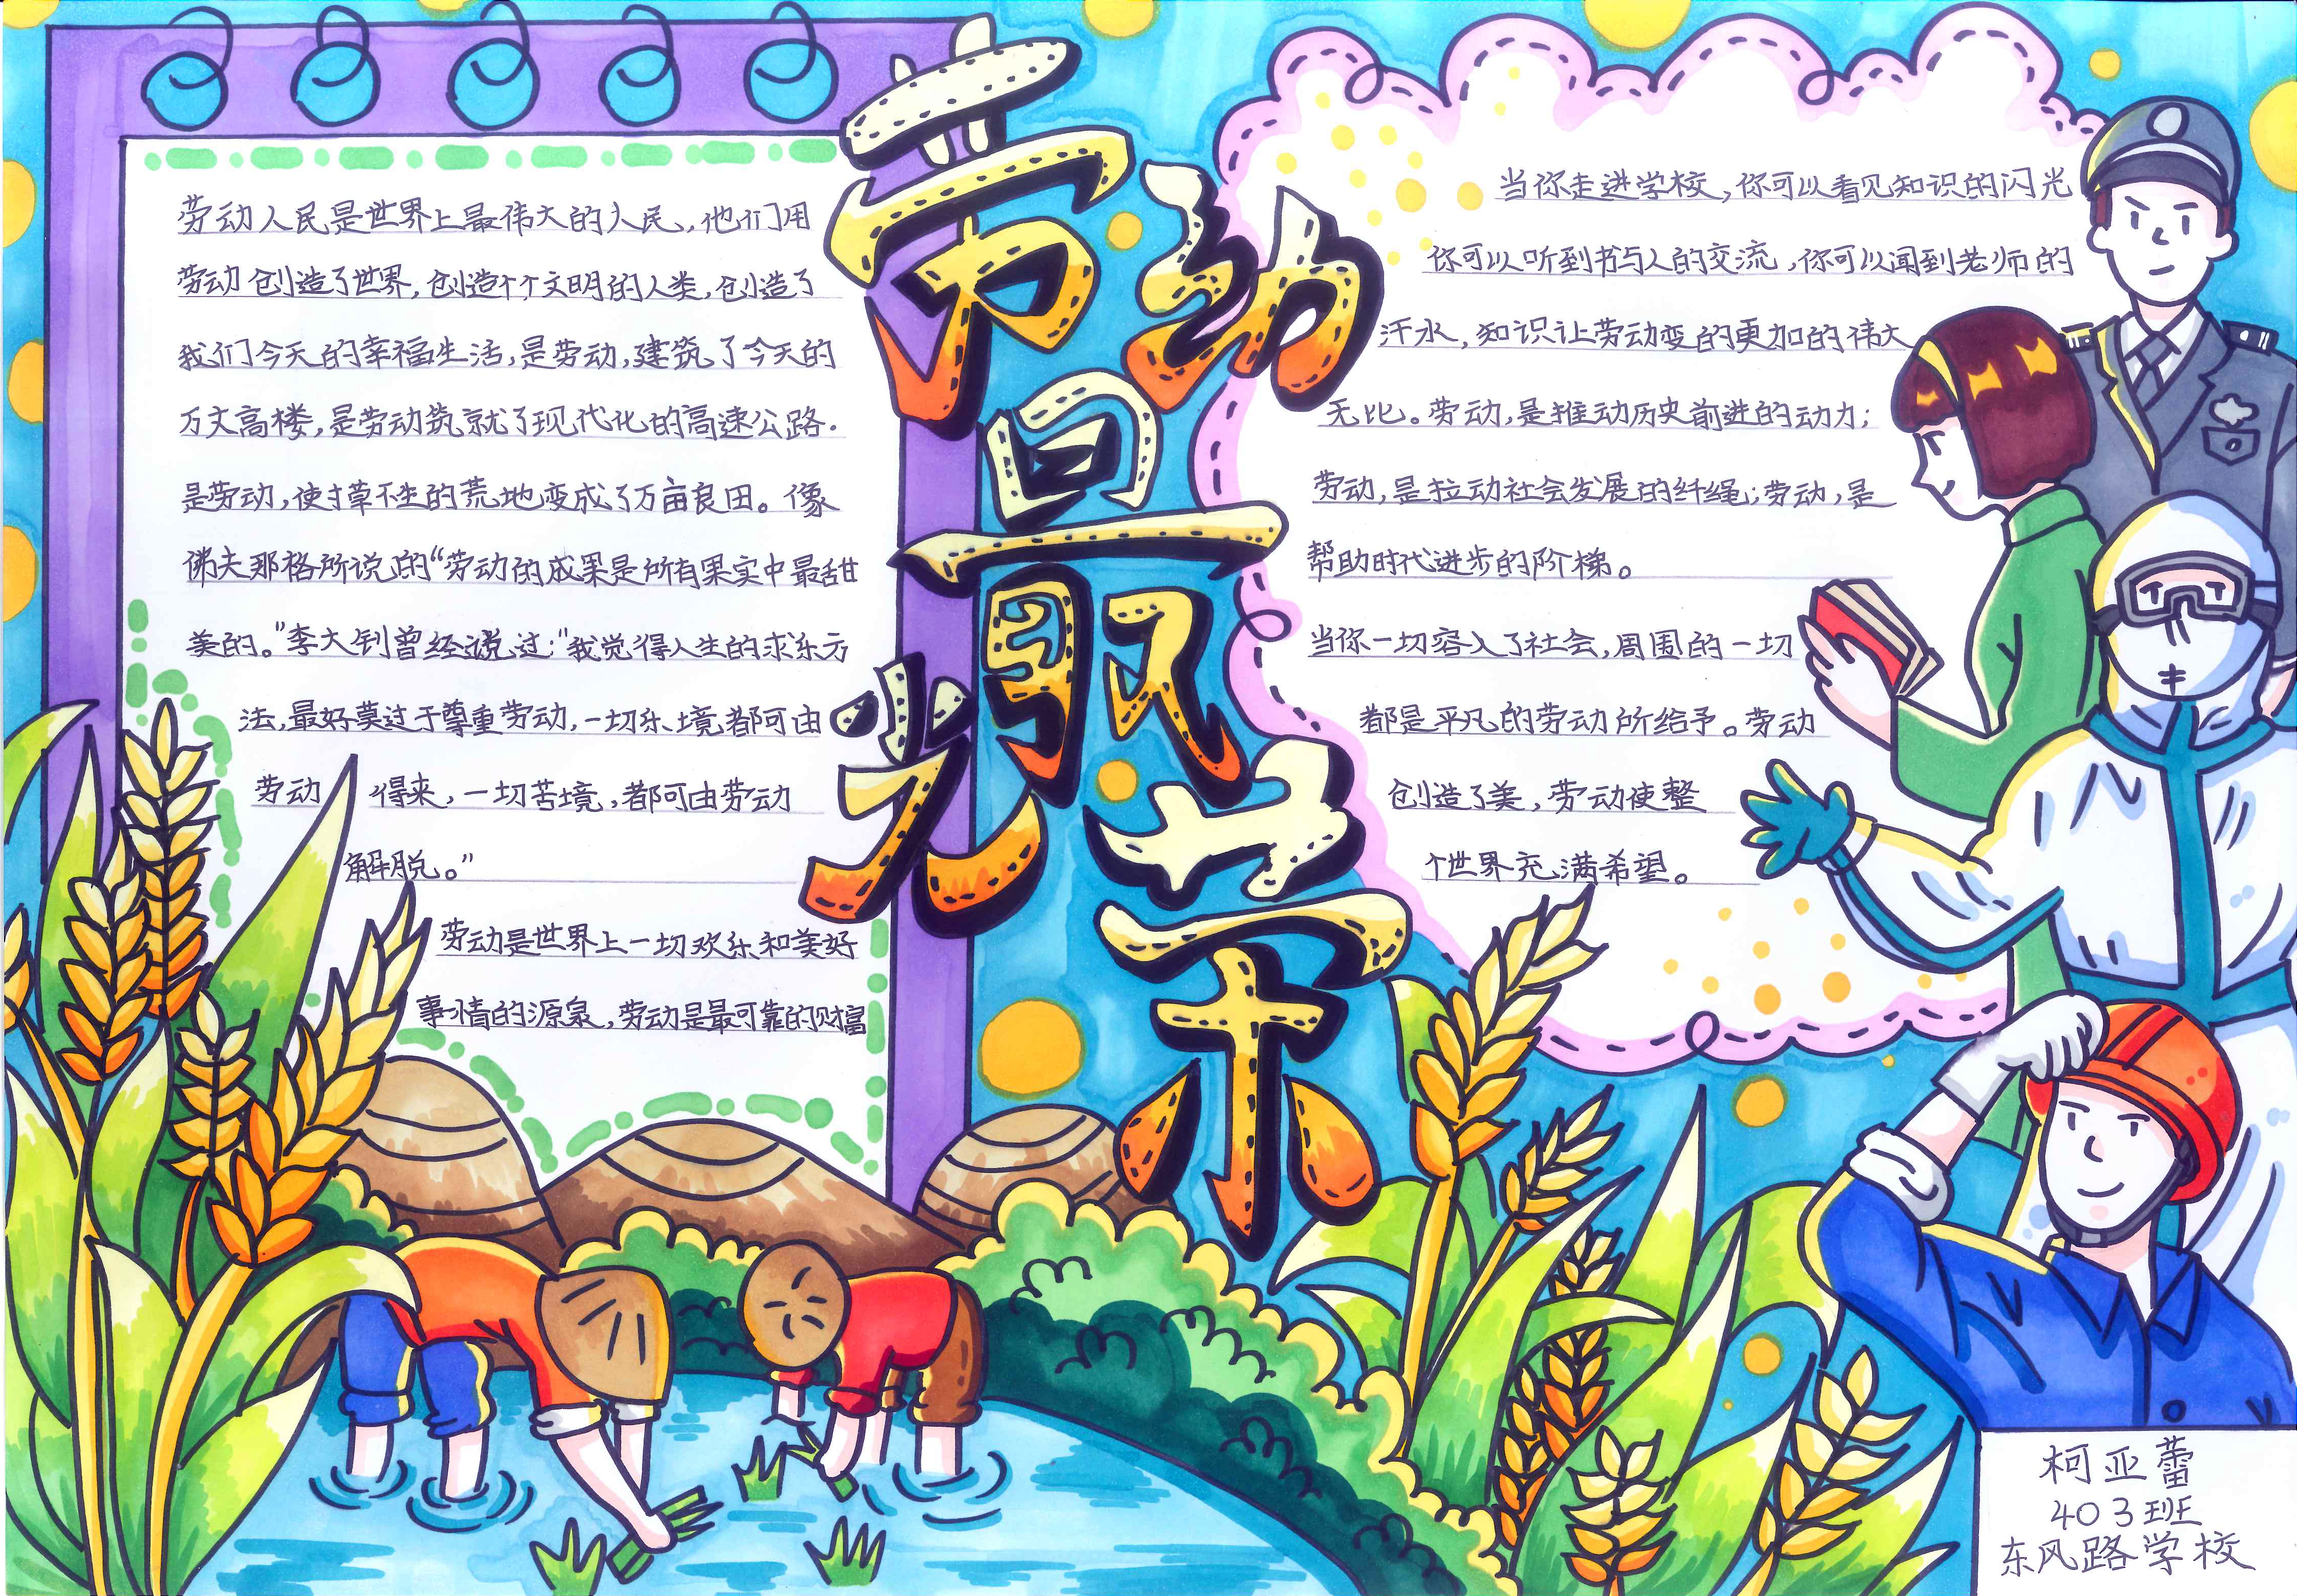 劳动最光荣
劳动人民是世界上最伟大的人民,他们用
劳动创造了世界,创造个个文明的人类,创造了
我们今天的幸福生活,是劳动,建筑了今天的
万丈高楼,是劳动筑就了现代化的高速公路.
是劳动,使寸草不生的荒地变成了万亩良田。像
佛夫那格所说的“劳动的成果是所有果实中最甜
美的。”李大钊曾经说过:“我觉得人生的求乐方
法,最好莫过于尊重劳动,一切乐境,都可由
劳动 得来,一切苦境,都可由劳动
解脱。”
劳动是世界上一切欢乐和美好
事情的源泉,劳动是最可靠的财富
当你走进学校,你可以看见知识的闪光
你可以听到书与人的交流,你可以闻到老师的
汗水,知识让劳动变的更加的伟大
无比。劳动,是推动历史前进的动力;
劳动,是拉动社会发展的纤绳;劳动,是
帮助时代进步的阶梯。
当你一切容入了社会,周围的一切
都是平凡的劳动所给予。劳动
创造了美,劳动使整
个世界充满希望。
柯亚蕾
403班
东风路学校